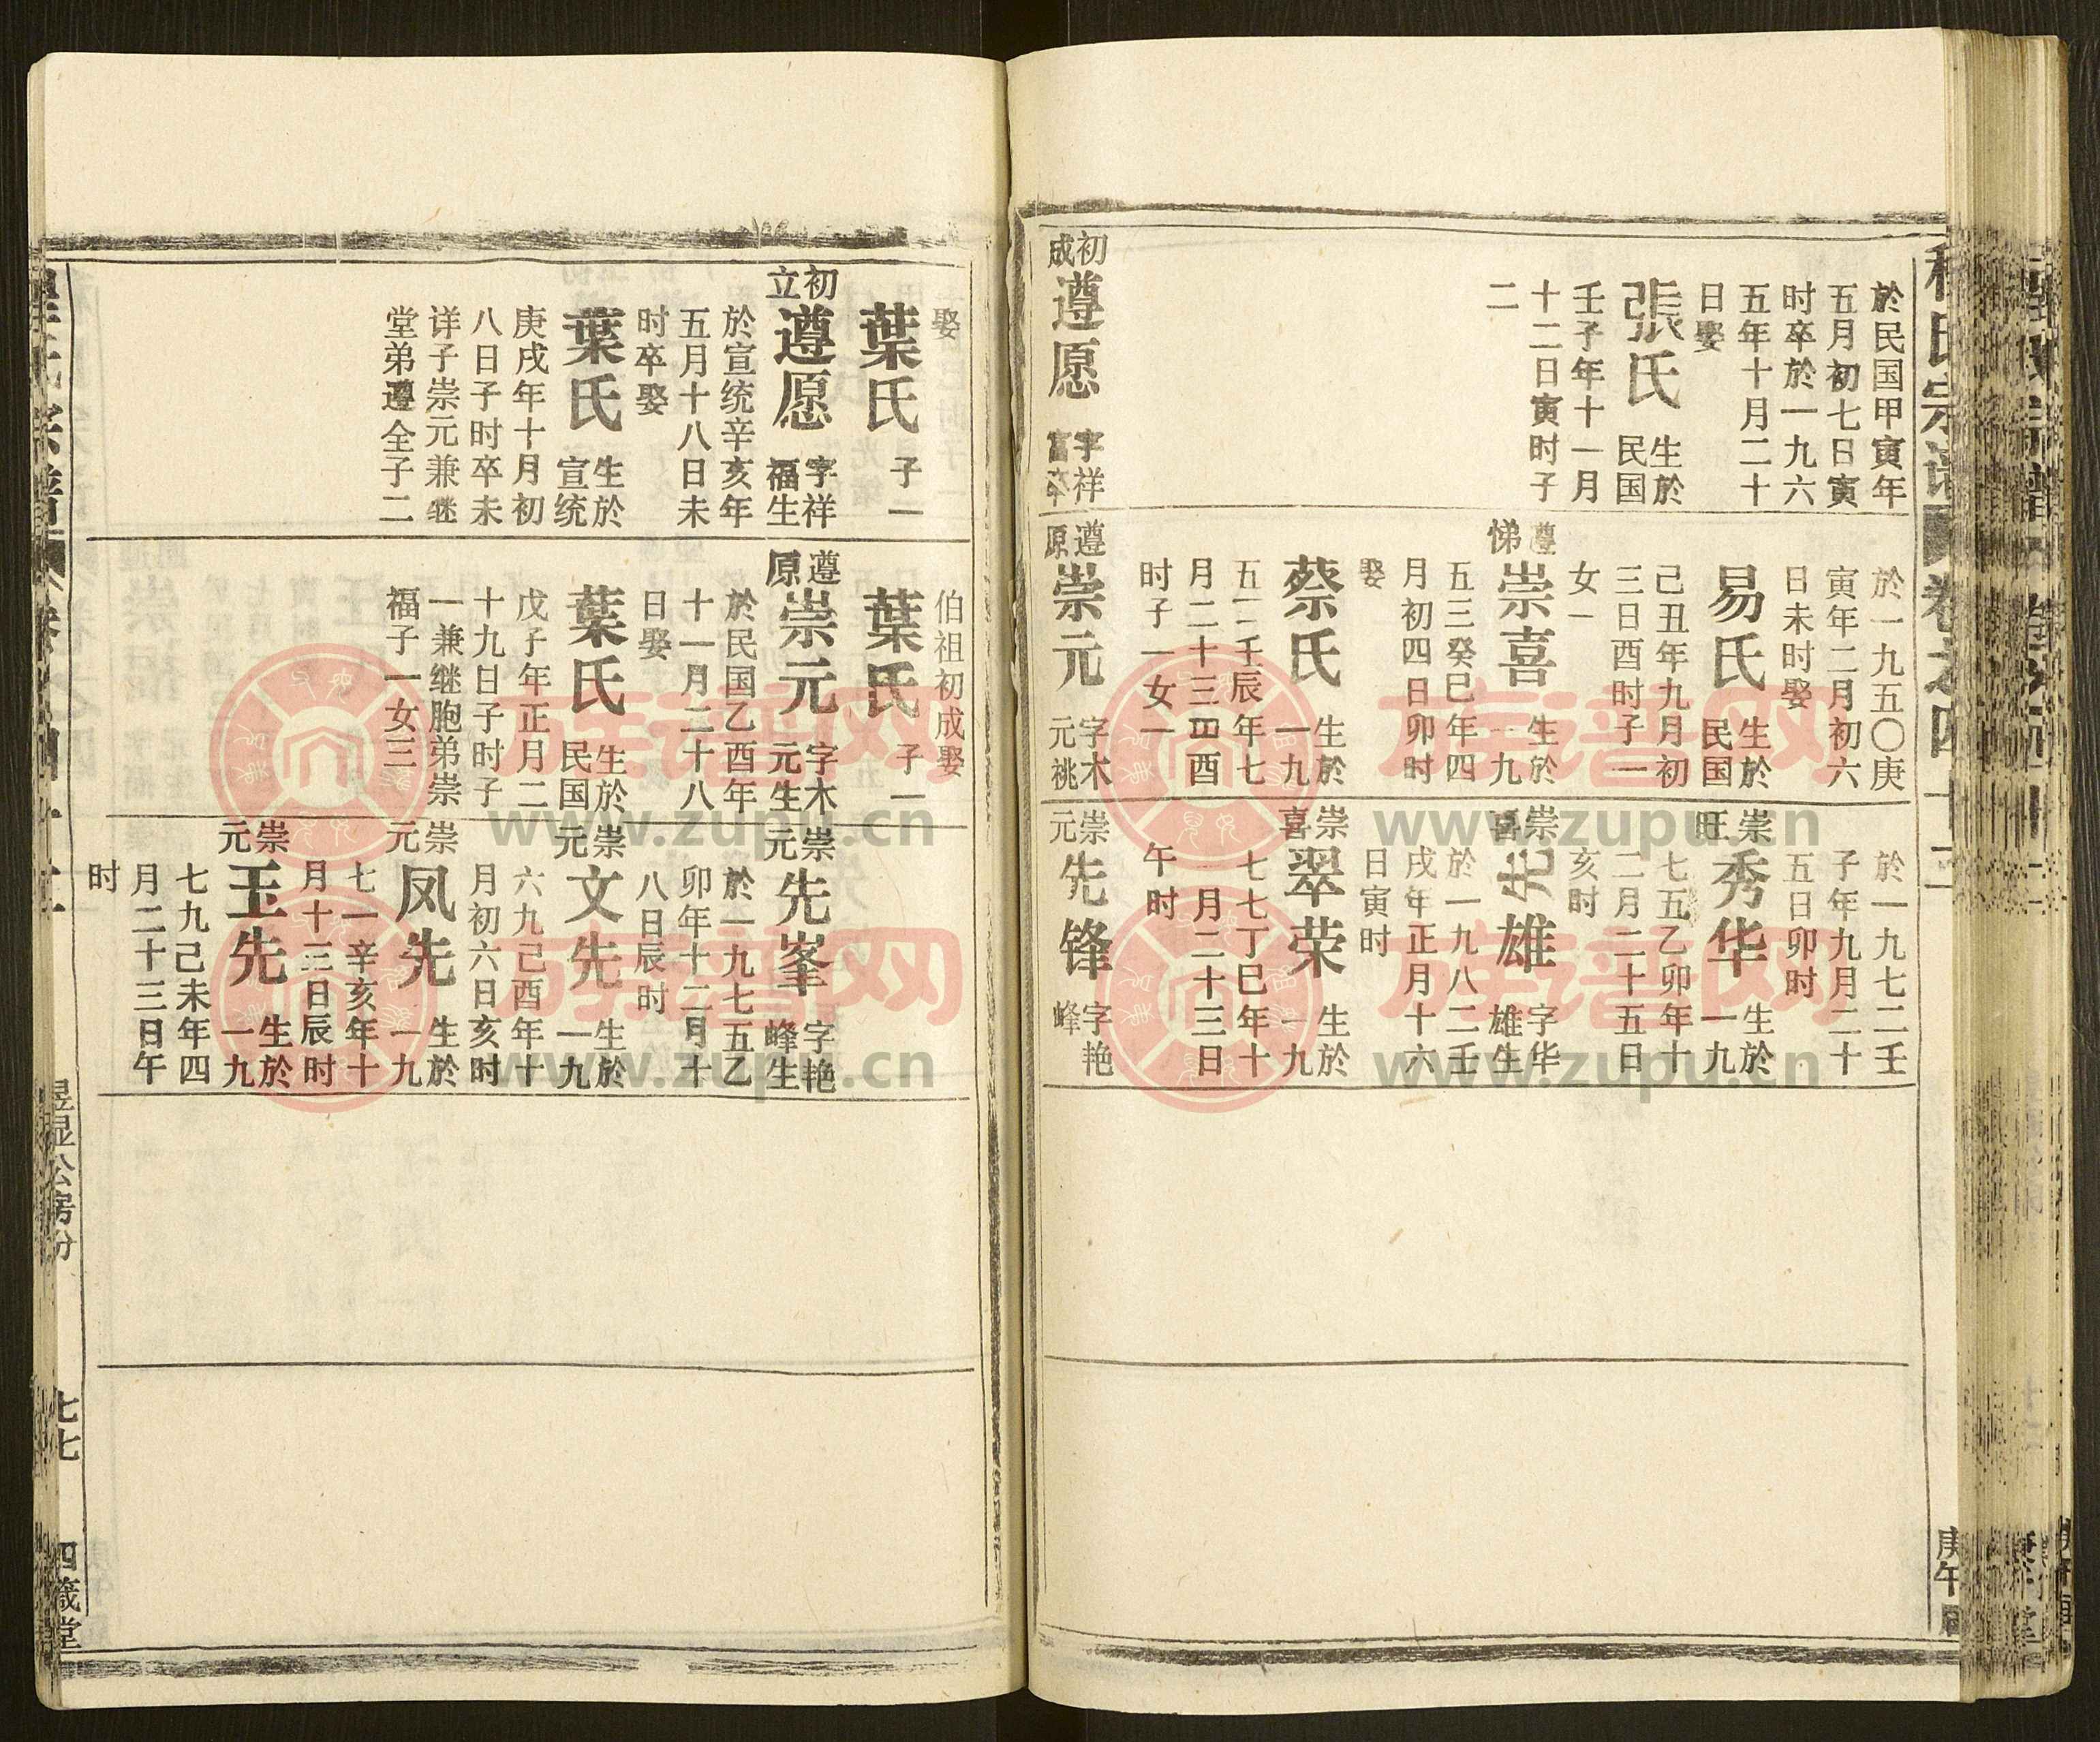 氏宗譜
卷之四十二
庚午
於民国甲寅年
五月初七日寅
时卒於一九六
五年十月二十
日娶
張氏
生於
民国
壬子年十一月
十二日寅时子
二
初
成
遵愿
字祥
富卒
於一九五〇庚
寅年二月初六
日未时娶
易氏
生於
民国
己丑年九月初
三日酉时子一
女一
遵
悌
崇喜
生於
一九
五三癸巳年四
月初四日卯时
娶
蔡氏
生於
一九
五二壬辰年七
月二十三四酉
时子一女一
遵
原
崇元
字木
元祧
於一九七二壬
子年九月二十
五日卯时
崇
旺
秀华
生於
一九
七五乙卯年十
二月二十五日
亥时
崇
喜
先雄
字华
雄生
於一九八二壬
戌年正月十六
日寅时
崇
喜
翠荣
生於
一九
七七丁巳年十
一月二十三日
午时
崇
元
先锋
字艳
峰
娶
葉氏
子一
初
立
遵愿
字祥
福生
於宣统辛亥年
五月十八日未
时卒娶
葉氏
生於
宣统
庚戌年十月初
八日子时卒未
详子崇元兼继
堂弟遵全子二
伯祖初成娶
葉氏
子一
遵
原
崇元
字木
元生
於民国乙酉年
十一月二十八
日娶
葉氏
生於
民国
戊子年正月二
十九日子时子
一兼继胞弟崇
福子一女三
崇
元
先峯
字艳
峰生
於一九七五乙
卯年十二月十
八日辰时
崇
元
文先
生於
一九
六九己酉年十
月初六日亥时
崇
元
凤先
生於
一九
七一辛亥年十
月十三日辰时
崇
元
玉先
生於
一九
七九己未年四
月二十三日午
时
昱显公房份
七七
四箴堂
族譜网
www.zupu.cn
族譜网
www.zupu.cn
族譜网
www.zupu.cn
族譜网
www.zupu.cn